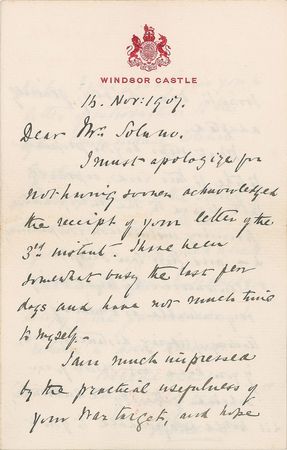 WINDSOR CASTLE
15. Nov: 1907.
Dear Mr. Solano.
I must apologize for
not having sooner acknowledged
the receipt of your letter of the
3rd instant. I have been
somewhat busy the last few
days and have not much time
to myself.-
I am much impressed
by the practical usefulness of
your War targets, and hope